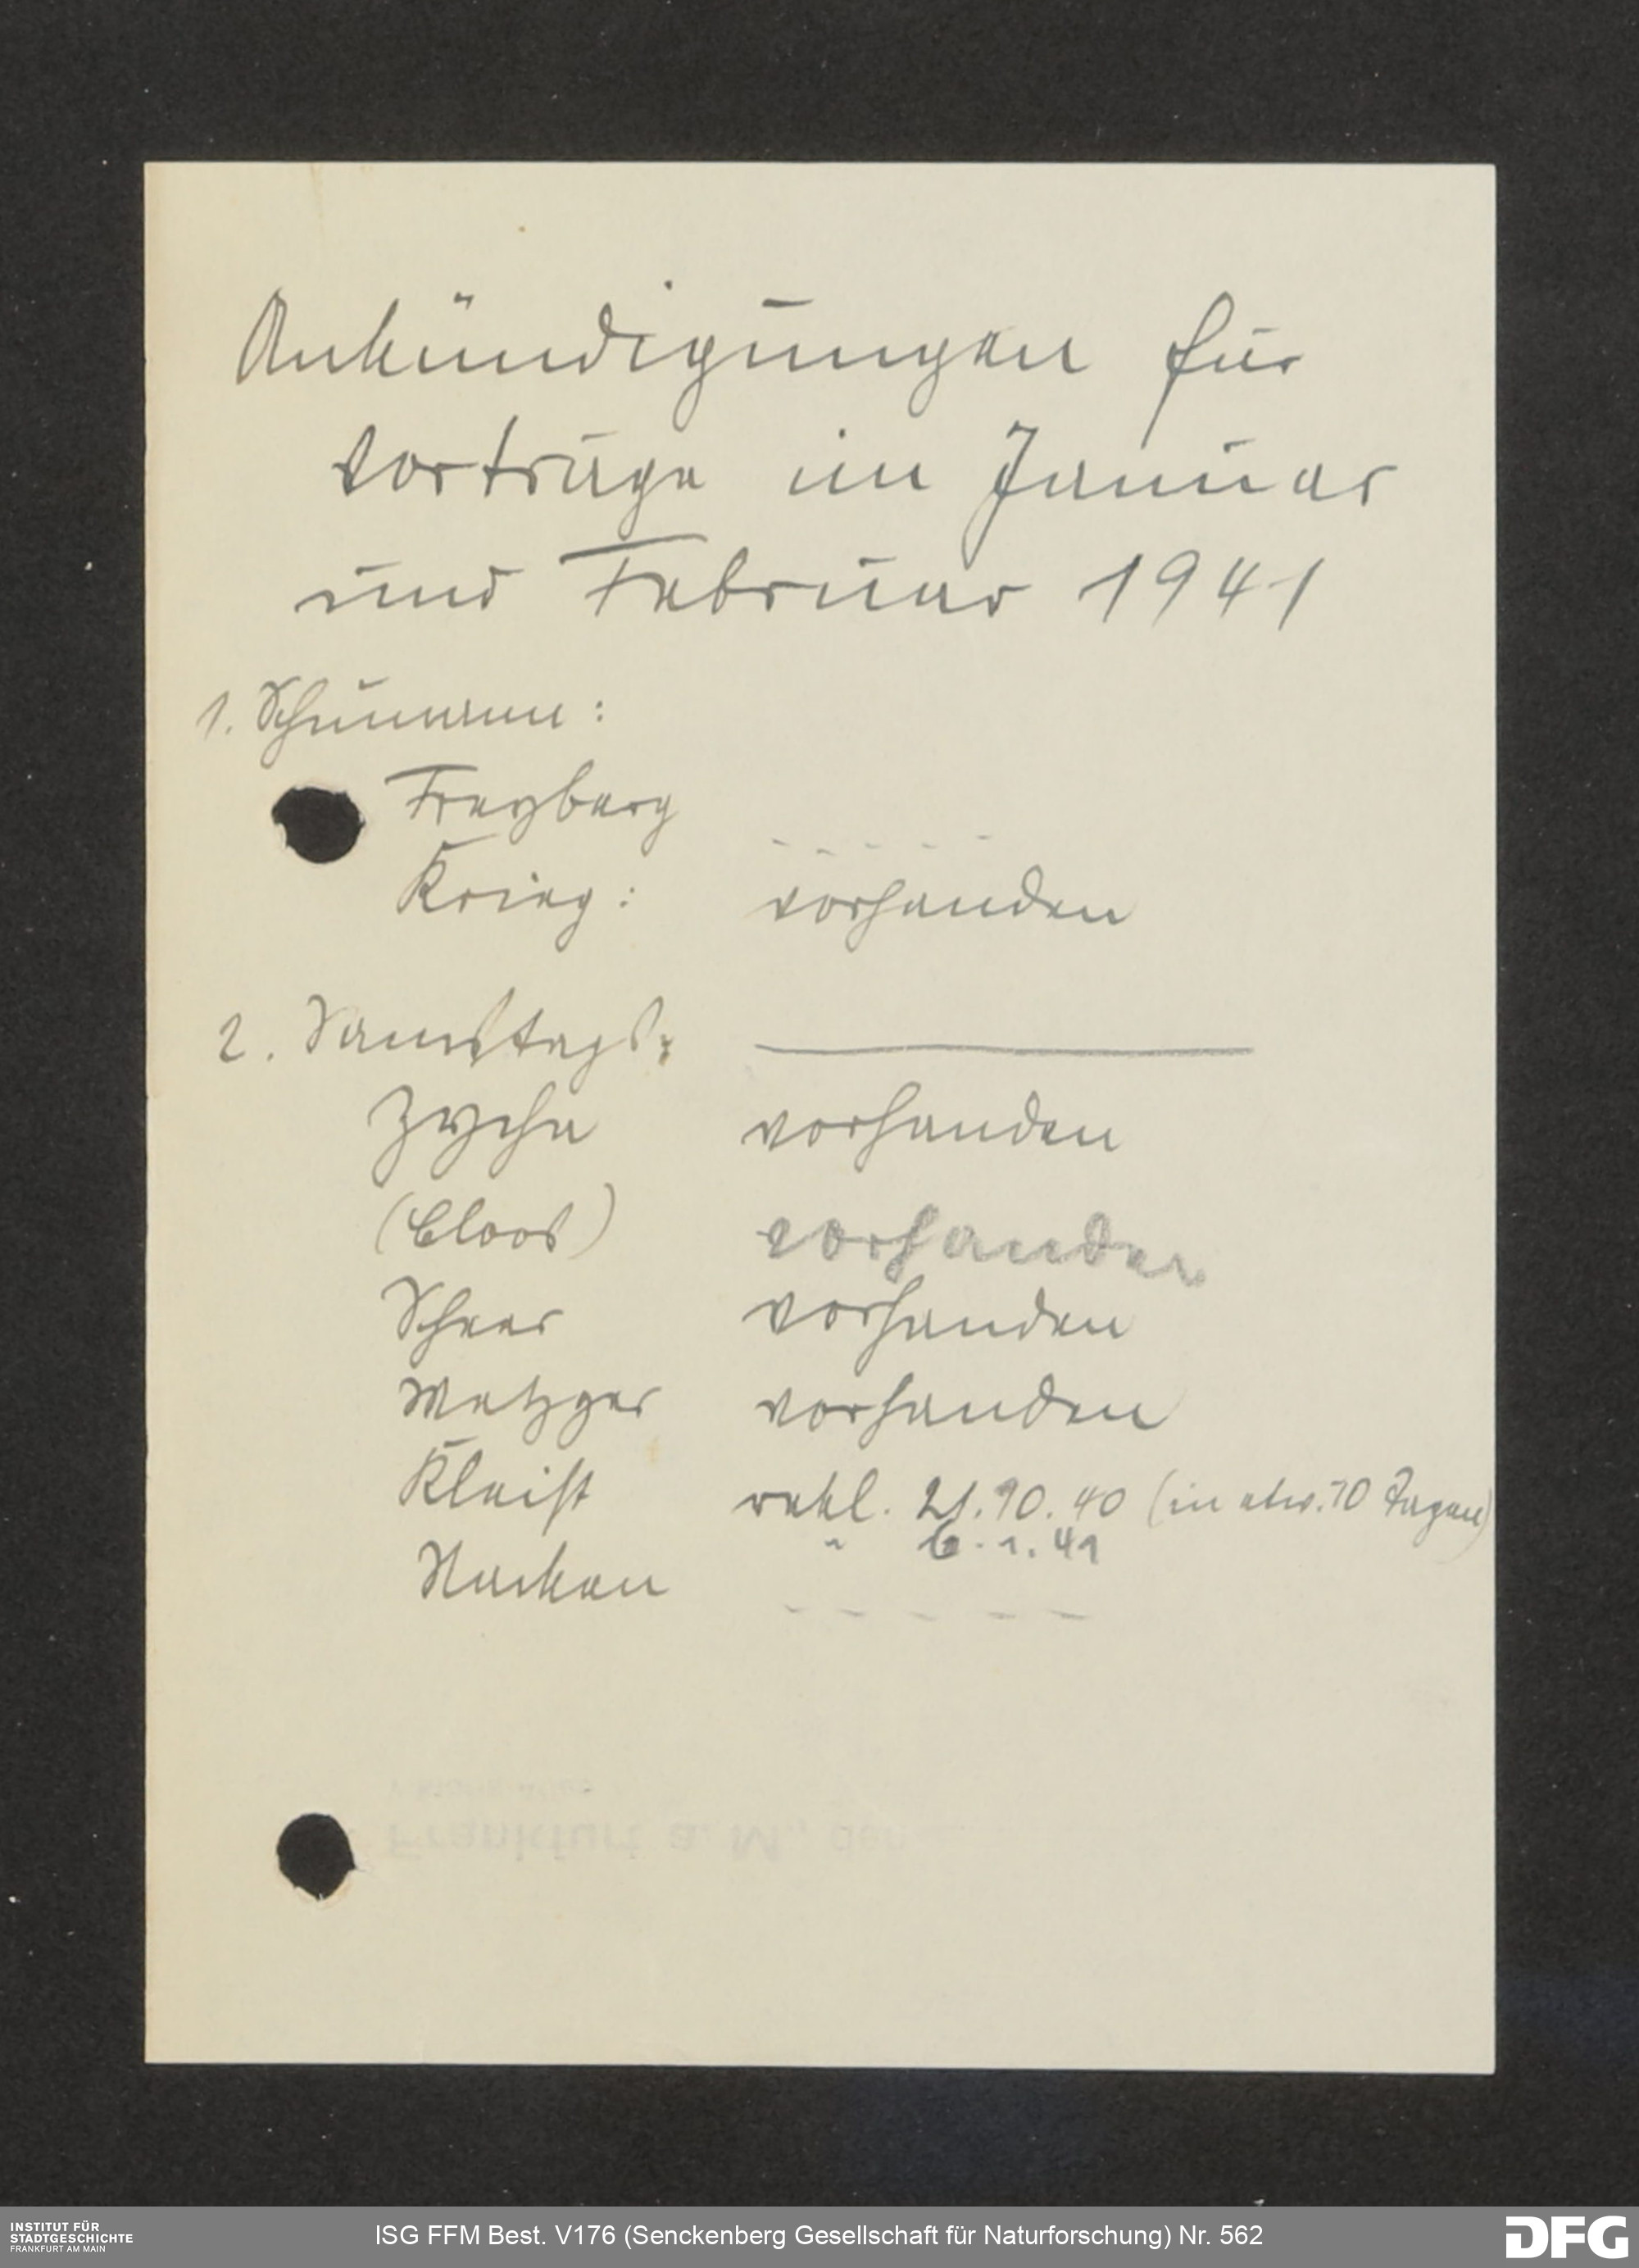 Ankündigungen für
Vorträge im Januar
und Februar 1941
1. Schumann:
Freyberg - - - - -
Krieg: vorhanden
2. Samstags:
Zycha vorhanden
(Cloos) vorhanden
Scheer vorhanden
Metzger vorhanden
Kleist rekl. 21.10.40 (in etw. 10 Tagen)
" 6.1.41
Nacken - - - - -
Frankfurt a. M., den
INSTITUT FÜR
STADTGESCHICHTE
FRANKFURT AM MAIN
ISG FFM Best. V176 (Senckenberg Gesellschaft für Naturforschung) Nr. 562
DFG